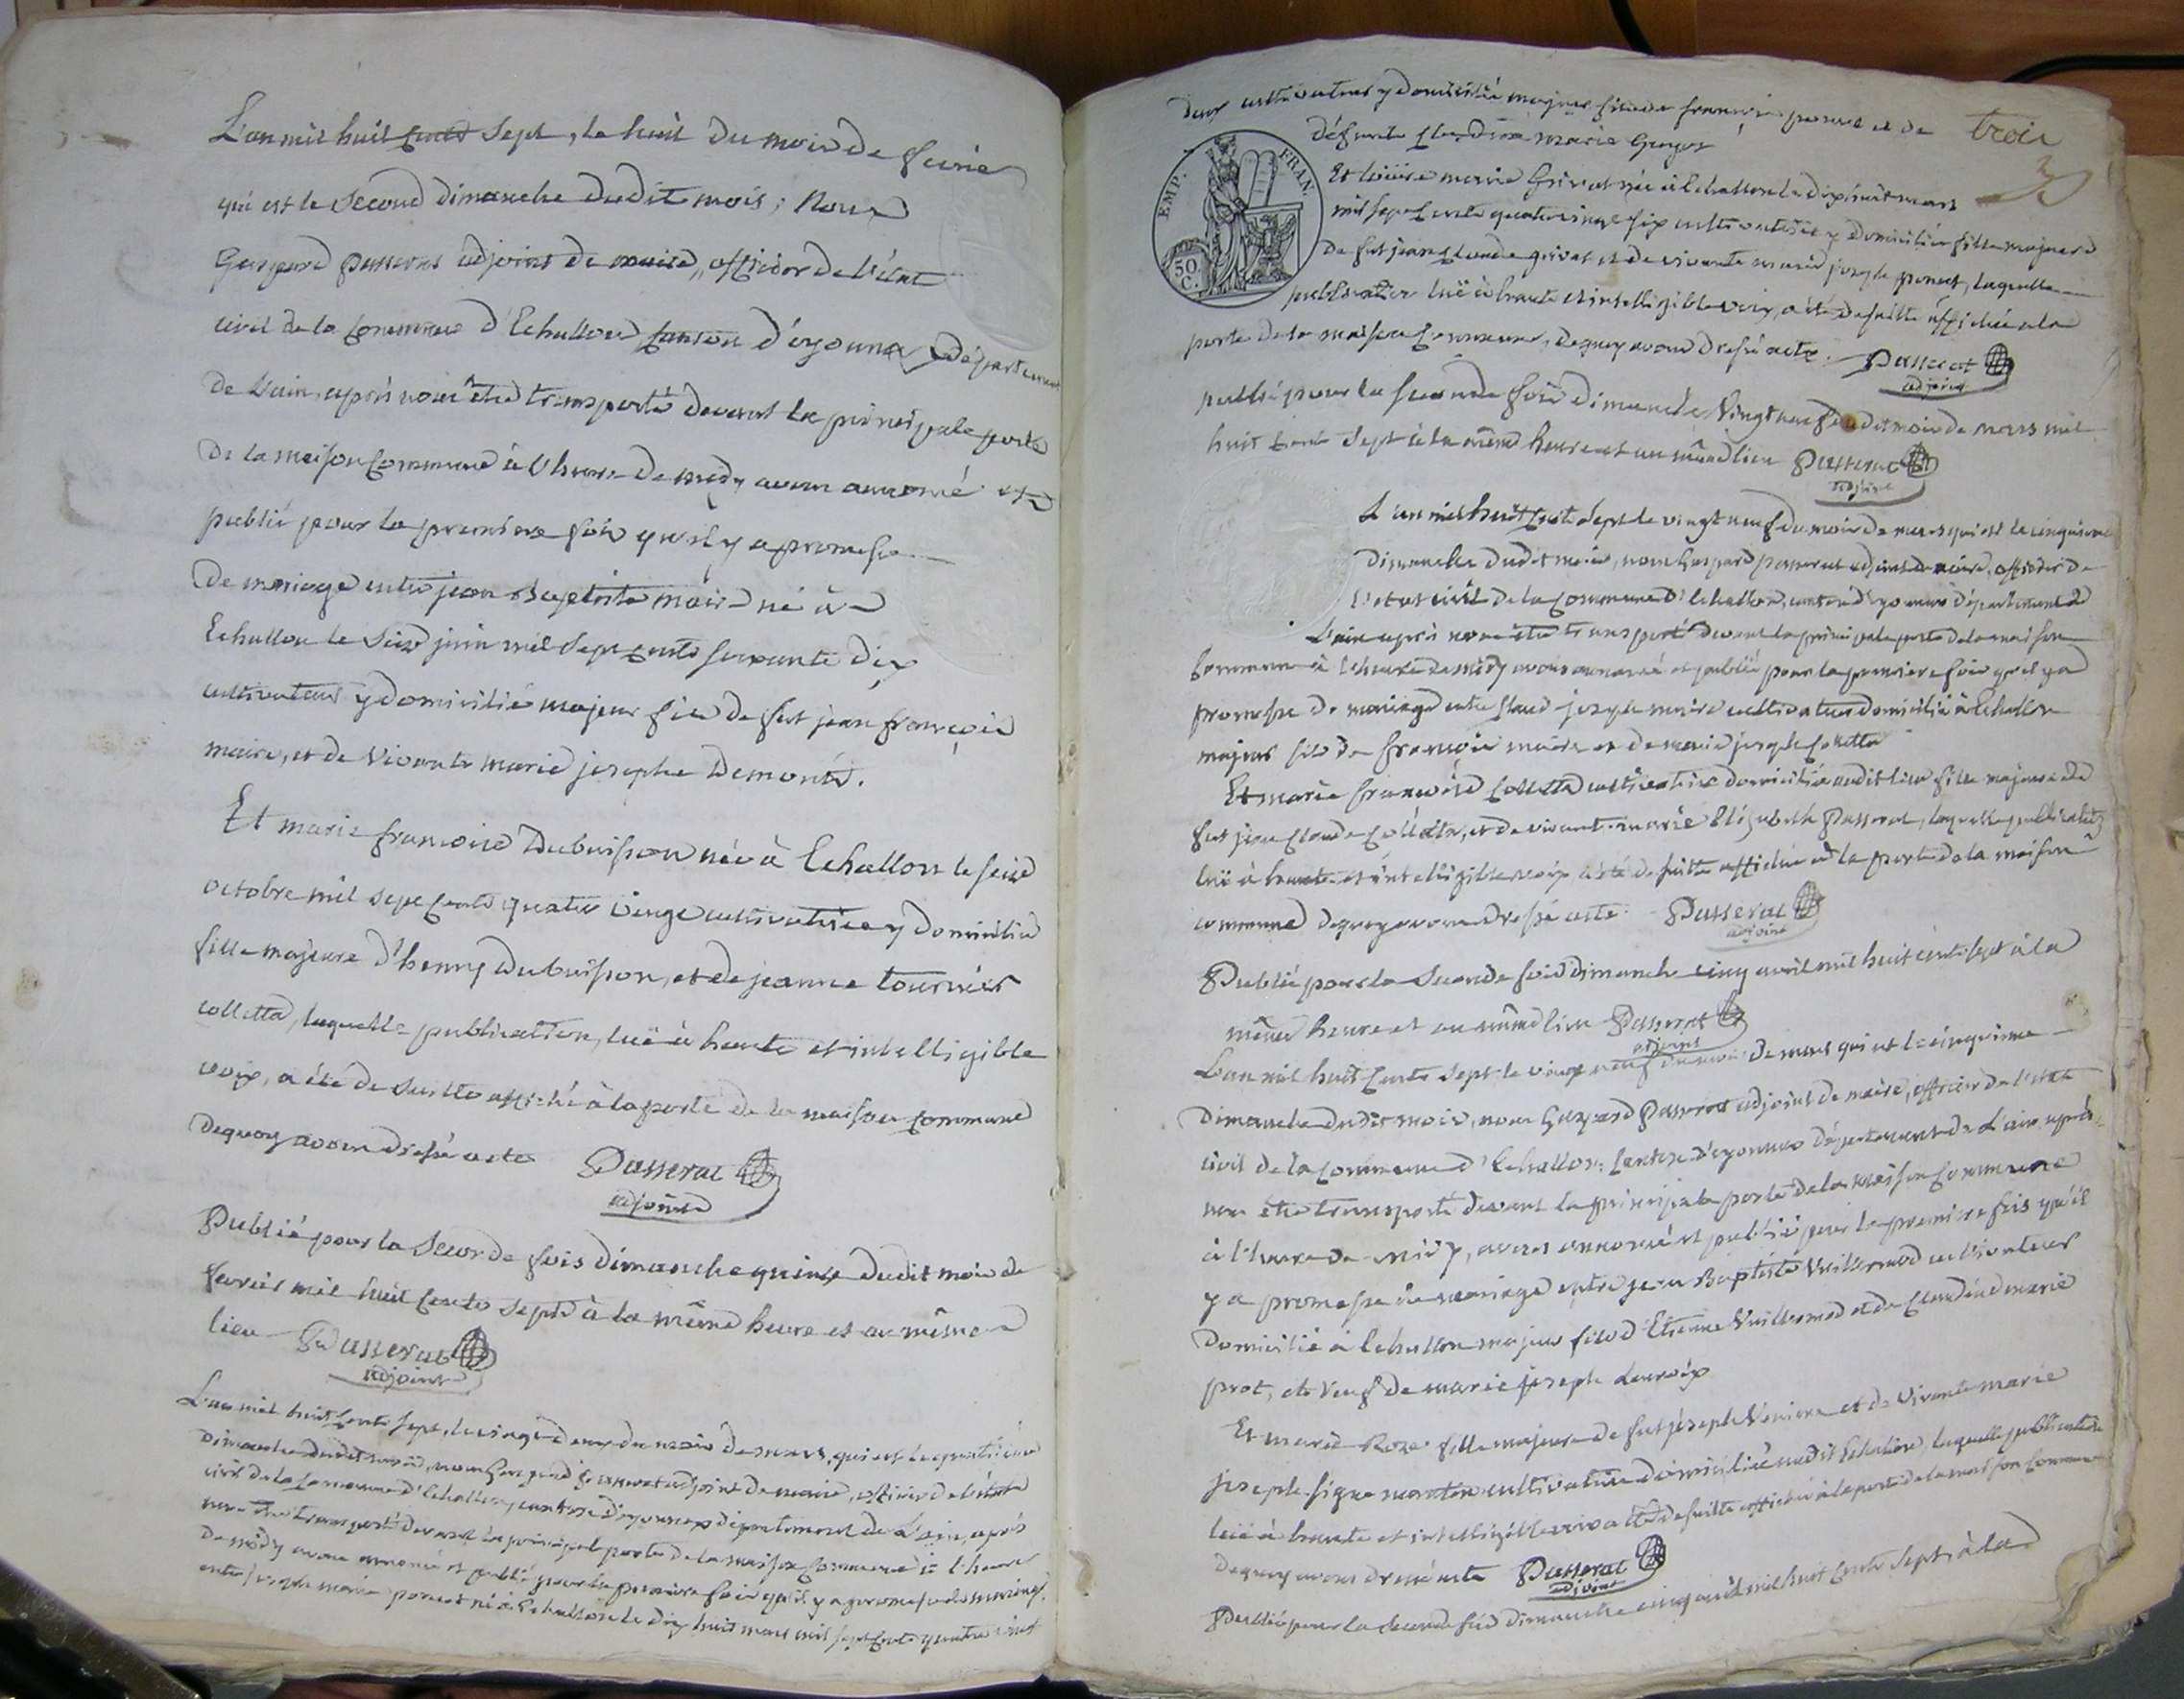 L'an mil huit cents sept, le huit du mois de fevrie
qui est le second dimanche dudit mois; Nous
Gaspard passerat adjoint de maire, officier de l'état
civil de la commune d'Echallon, canton d'oyonnax, département
de L'ain, après nous être transporté devant la principale porte
de la maison commune à l'heure de midy avons annoncé et
publié pour la premiere fois qu'il y a promesse
de mariage entre jean Baptiste maire né à
Echallon le juin mil sept cents soixante dix
cultivateur y domicilié majeur fils de fut jean françois
maire, et de vivante marie josephe Demonts.
Et marie françoise Dubuisson née à Echallon le seize
octobre mil sept cents quatre vingt cultivatrice y domiciliée
fille majeure d'henry Dubuisson, et de jeanne tournier
colletta, laquelle publication, luë à haute et intelligible
voix, a été de suitte affiché à la porte de la maison commune
dequoy avons dressé acte Passerat
adjoint
Publié pour la seconde fois dimanche quinze dudit mois de
fevrier mil huit cents sept à la même heure et au même
lieu Passerat
adjoint
L'an mil huit cents sept, le vingt deux du mois de mars, qui est le quatrième
dimanche dudit mois, nous Gaspard passerat adjoint de maire, officier de l'état
civil de la commune d'Echallon, canton d'oyonnax département de L'ain, après
nous être transporté devant la principale porte de la maison commune à l'heure
de midy avons annoncé et publié pour la premiere fois qu'il y a promesse de mariage
entre joseph marie poncet né à Echallon le dix huit mars mil sept cents quatre vingt
deux cultivateur y domicilié majeur fils de françois poncet et de
trois
3
défunte Claudine marie Guyot
EMP. FRAN.
50 C.
Et marie Grivat née à Echallon le dix huit mars
mil sept cents quatre vingt six cultivatrice y domiciliée fille majeure
de fut jean Claude grivat et de vivante marie josephe poncet, laquelle
publication luë à haute et intelligible voix, a été de suitte affichée à la
porte de la maison commune, dequoy avons dressé acte. Passerat
adjoint
publié pour la seconde fois dimanche vingt neuf dudit mois de mars mil
huit cents sept à la même heure et au même lieu Passerat
adjoint
L'an mil huit cents sept le vingt neuf du mois de mars qui est le cinquième
dimanche dudit mois, nous Gaspard passerat adjoint de maire, officier de
l'état civil de la commune d'Echallon, canton d'oyonnax département de
L'ain après nous être transporté devant la principale porte de la maison
commune à l'heure de midy avons annoncé et publié pour la premiere fois qu'il y a
promesse de mariage entre Claude joseph maire cultivateur domicilié à Echallon
majeur fils de françois maire et de marie josephe Colletta
Et marie françoise Colletta cultivatrice domiciliée audit lieu fille majeure de
fut jean Claude Colletta, et de vivante marie Elizabeth Passerat, laquelle publication
luë à haute et intelligible voix a été de suitte affichée à la porte de la maison
commune dequoy avons dressé acte. Passerat
adjoint
Publié pour la seconde fois dimanche cinq avril mil huit cents sept à la
même heure et au même lieu Passerat
adjoint
L'an mil huit cents sept le vingt neuf du mois de mars qui est le cinquième
dimanche dudit mois, nous Gaspard Passerat adjoint de maire, officier de l'état
civil de la commune d'Echallon, canton d'oyonnax département de L'ain, après
nous être transporté devant la principale porte de la maison commune
à l'heure de midy, avons annoncé et publié pour la premiere fois qu'il
y a promesse de mariage entre jean Baptiste Vuillermod cultivateur
domicilié à Echallon majeur fils d'Etienne Vuillermod et de Claudine marie
prot, et Veuf de marie joseph Lacroix
Et marie Roze fille majeure de fut joseph Veniere et de vivante marie
josephe cultivatrice domiciliée audit Echallon, laquelle publication
luë à haute et intelligible voix a été de suitte affichée à la porte de la maison commune
dequoy avons dressé acte Passerat
adjoint
Publié pour la seconde fois dimanche cinq avril mil huit cents sept, à la